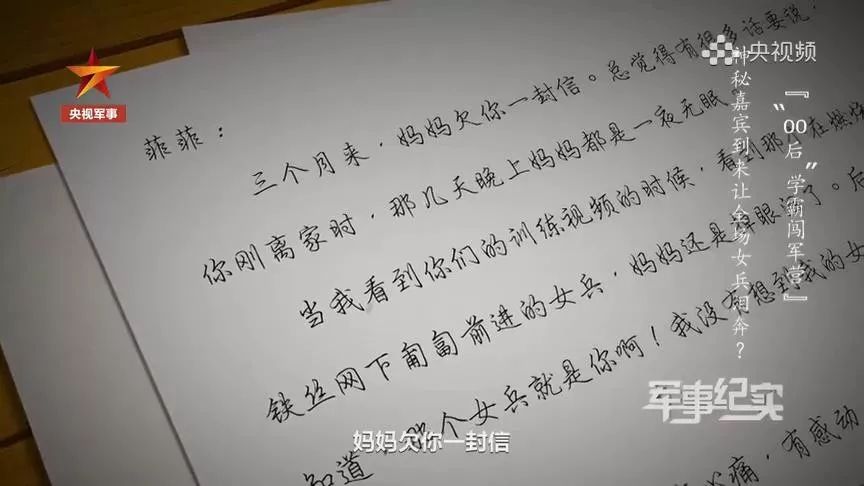 央视军事
央视频
『“00后”学霸闯军营』
神秘嘉宾到来让全场女兵泪奔？
菲菲：
三个月来，妈妈欠你一封信。总觉得有很多话要说，
你刚离家时，那几天晚上妈妈都是一夜无眠
当我看到你们的训练视频的时候，看到那个在燃烧
铁丝网下匍匐前进的女兵，妈妈还是掉眼泪了。后
知道，那个女兵就是你啊！我没有想到我的女
心痛，有感动
军事纪实
妈妈欠你一封信